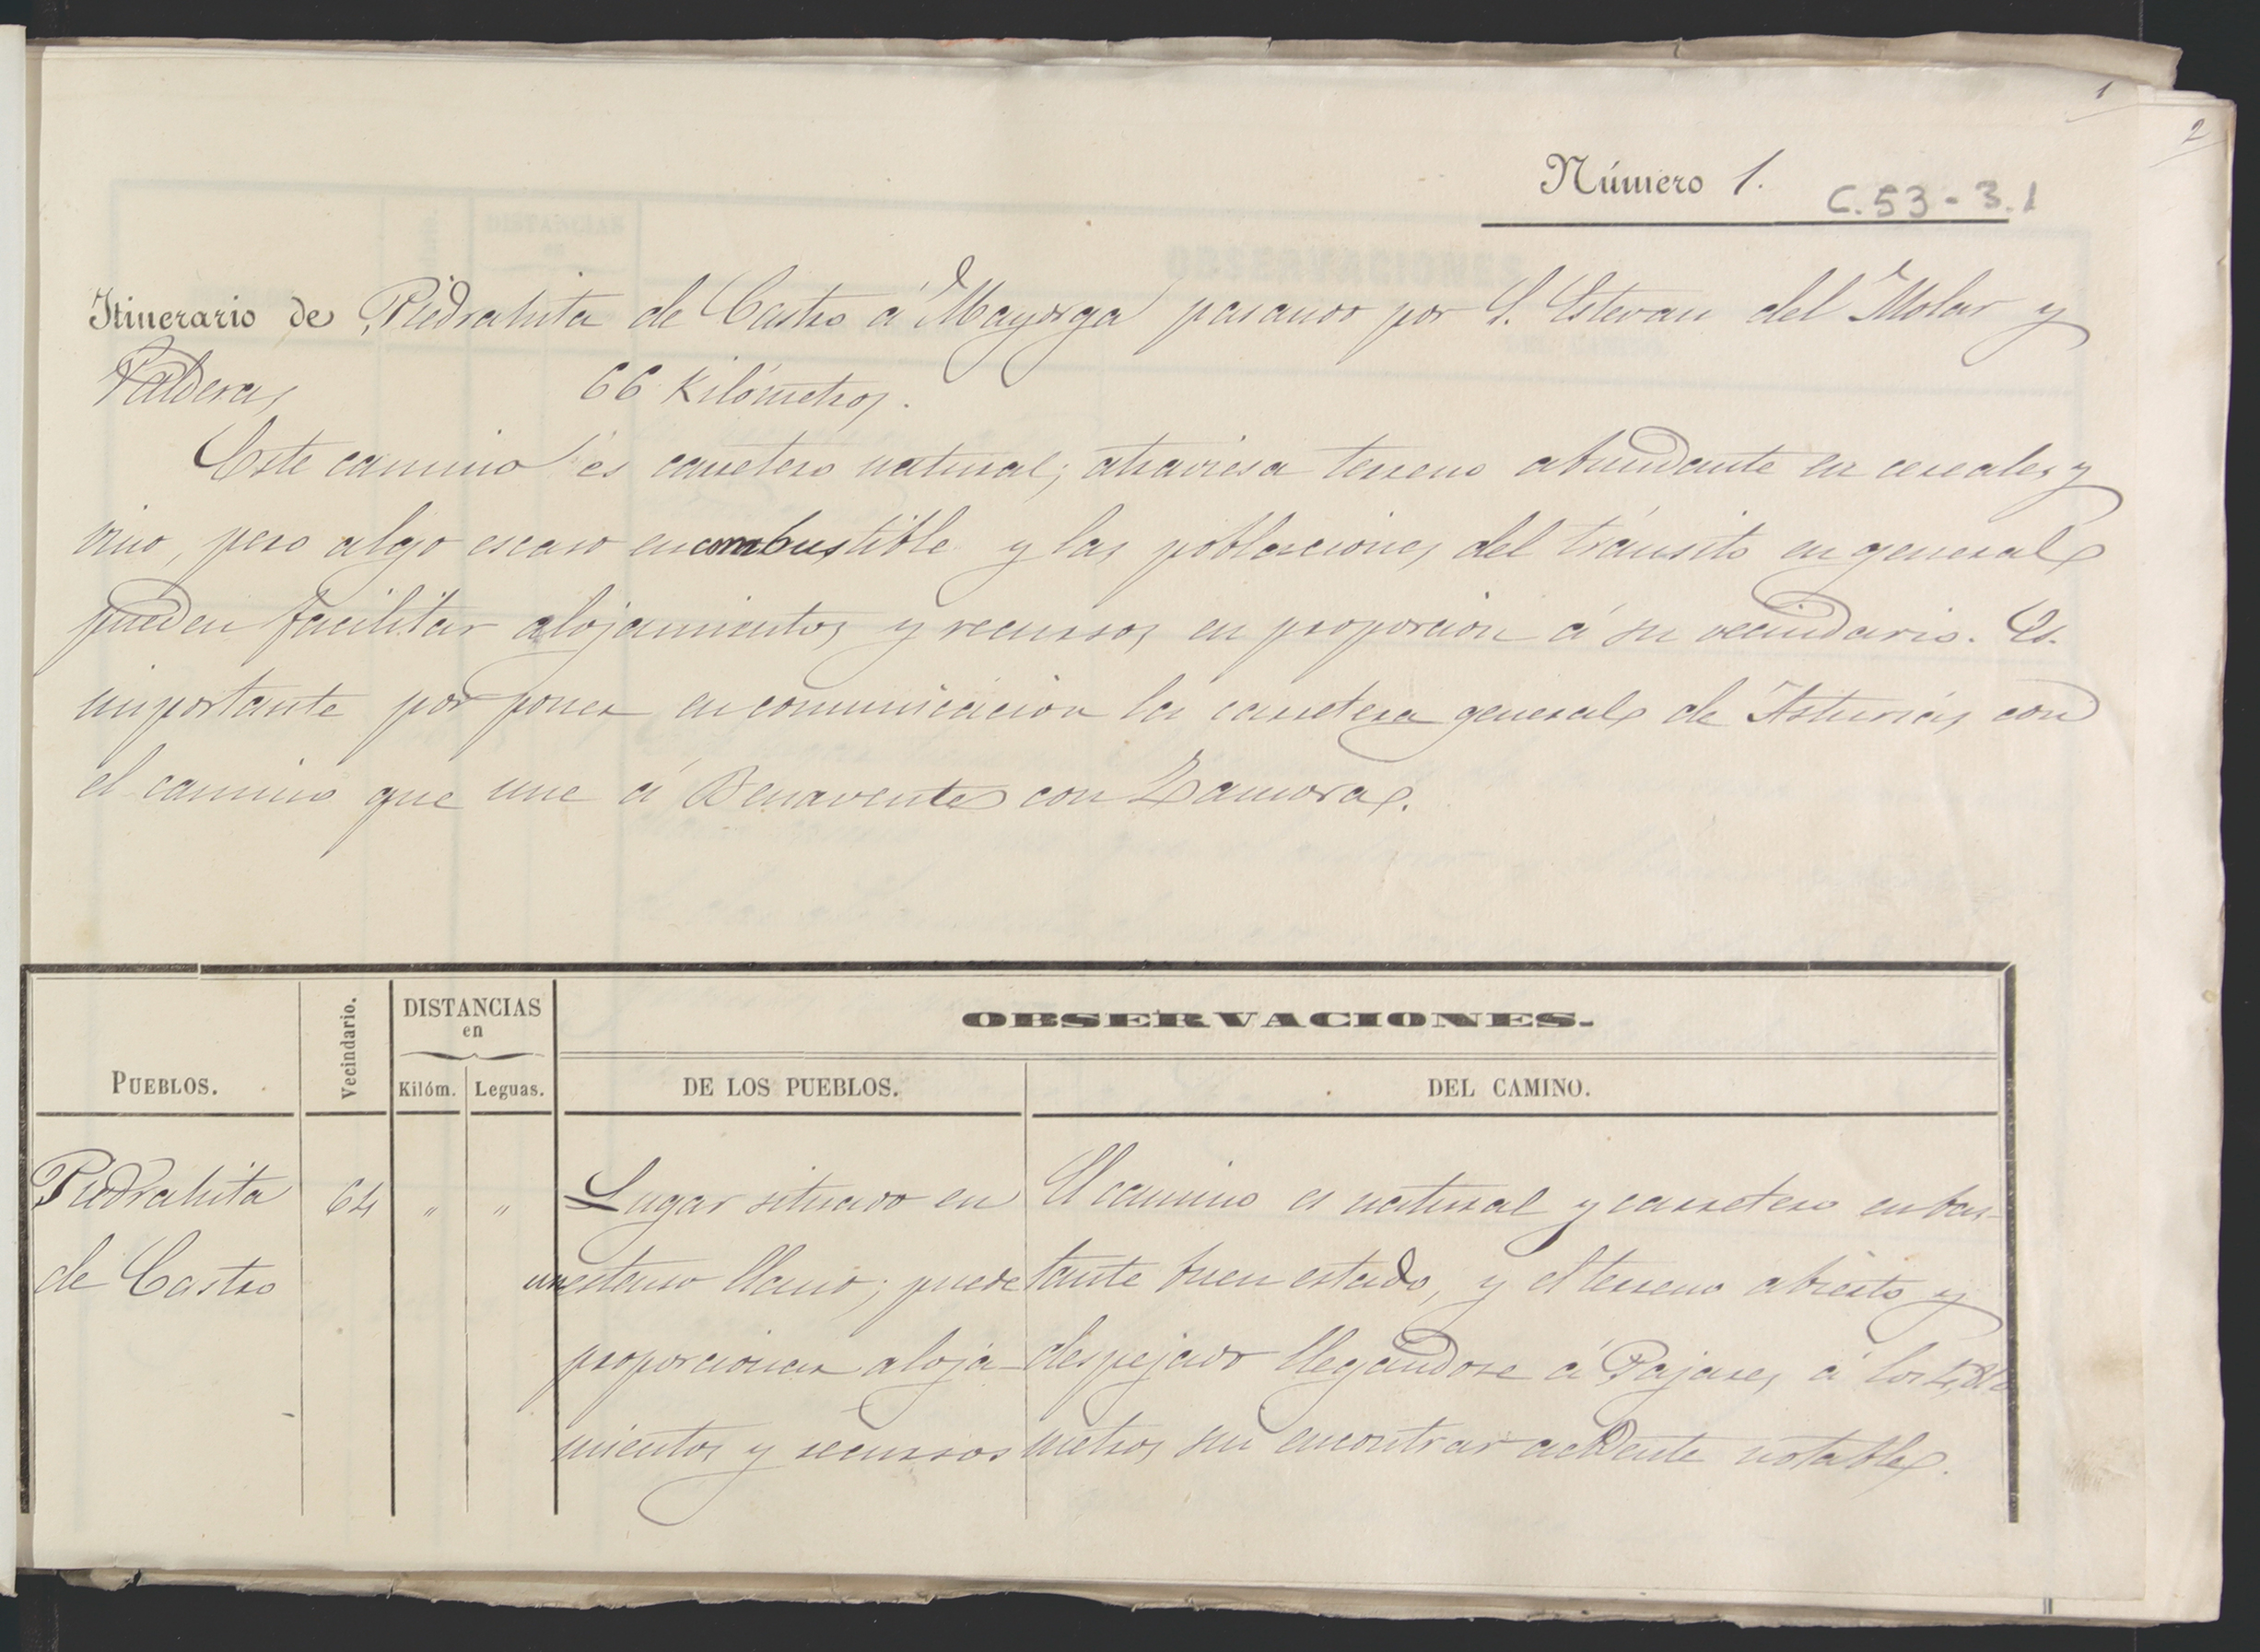 1
2
Número 1.
C.53-3.1
Itinerario de Piedrahita de Castro á Mayorga pasando por S. Estevan del Molar y
Valderas 66 Kilómetros.
Este camino és carretero natural; atraviesa terreno abundante en cereales y
vino, pero algo escaso en combustible y las poblaciones del tránsito en general
pueden facilitar alojamientos y recursos en proporcion á su vecindario. Es
importante por poner en comunicacion la carretera general de Asturias con
el camino que une á Benavente con Zamora.
PUEBLOS.
Vecindario.
DISTANCIAS
en
Kilóm. Leguas.
OBSERVACIONES.
DE LOS PUEBLOS.
DEL CAMINO.
Piedrahita
de Castro
64 " "
Lugar situado en
un estenso llano; puede
proporcionar aloja-
mientos y recursos
El camino es natural y carretero en bas-
tante buen estado, y el terreno abierto y
despejado llegándose á Pajares á los
metros sin encontrar acidente notable.